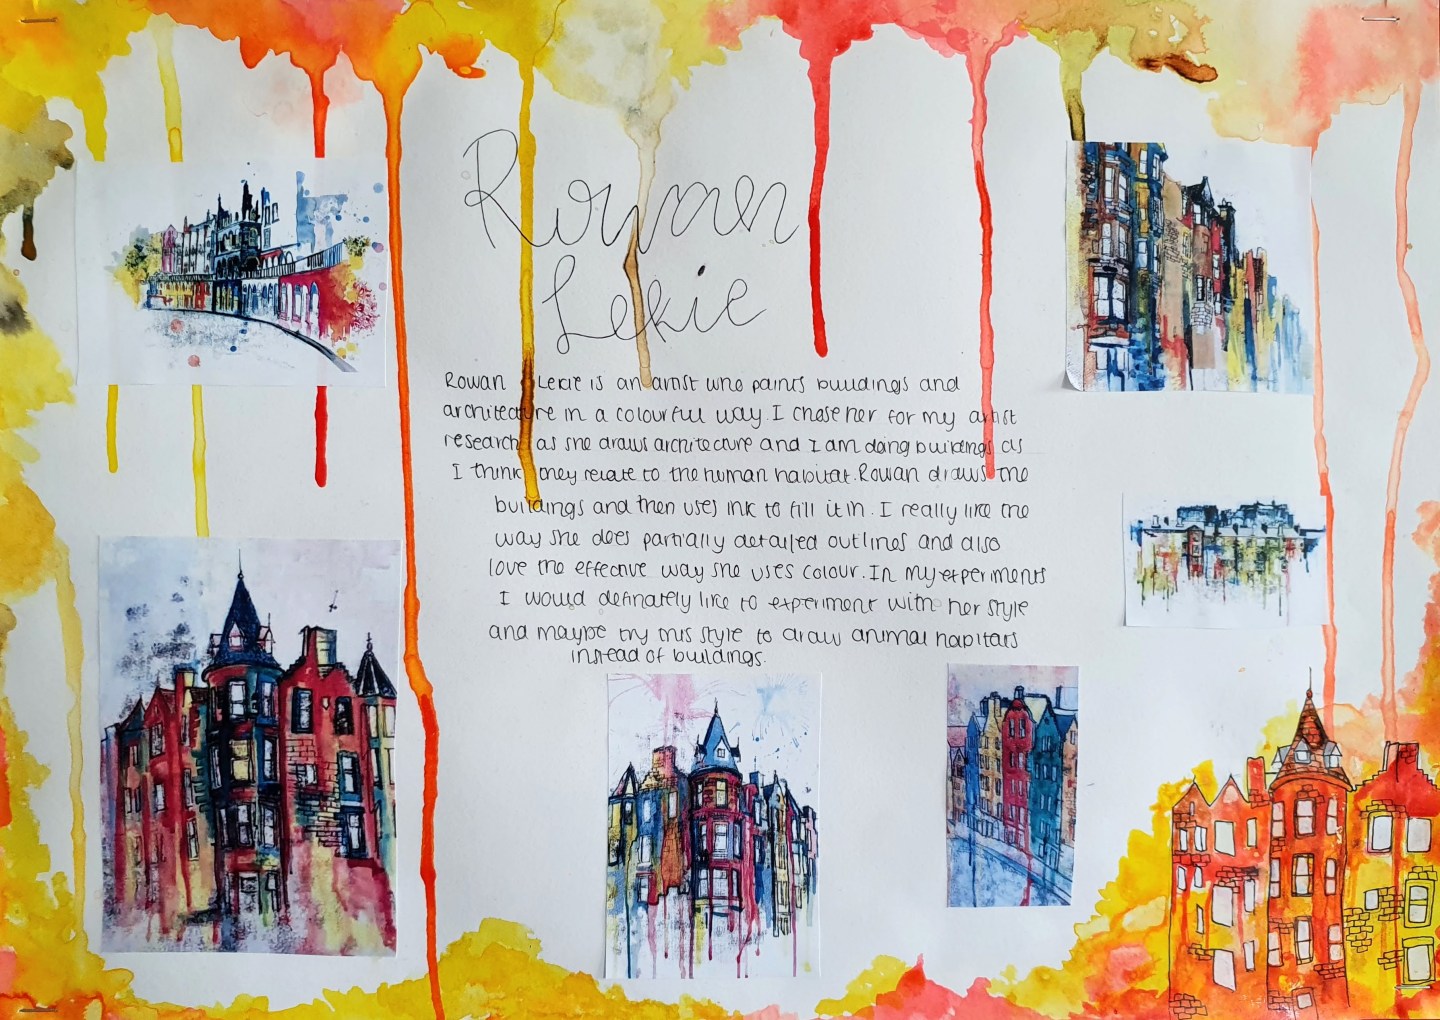 Rowan
Lekie
Rowan Lekie is an artist who paints buildings and
architecture in a colourful way. I chose her for my artist
research as she draws architecture and I am doing buildings as
I think they relate to the human habitat. Rowan draws the
buildings and then uses ink to fill it in. I really like the
way she does partially detailed outlines and also
love the effective way she uses colour. In my experiments
I would definately like to experiment with her style
and maybe try this style to draw animal habitats
instead of buildings.